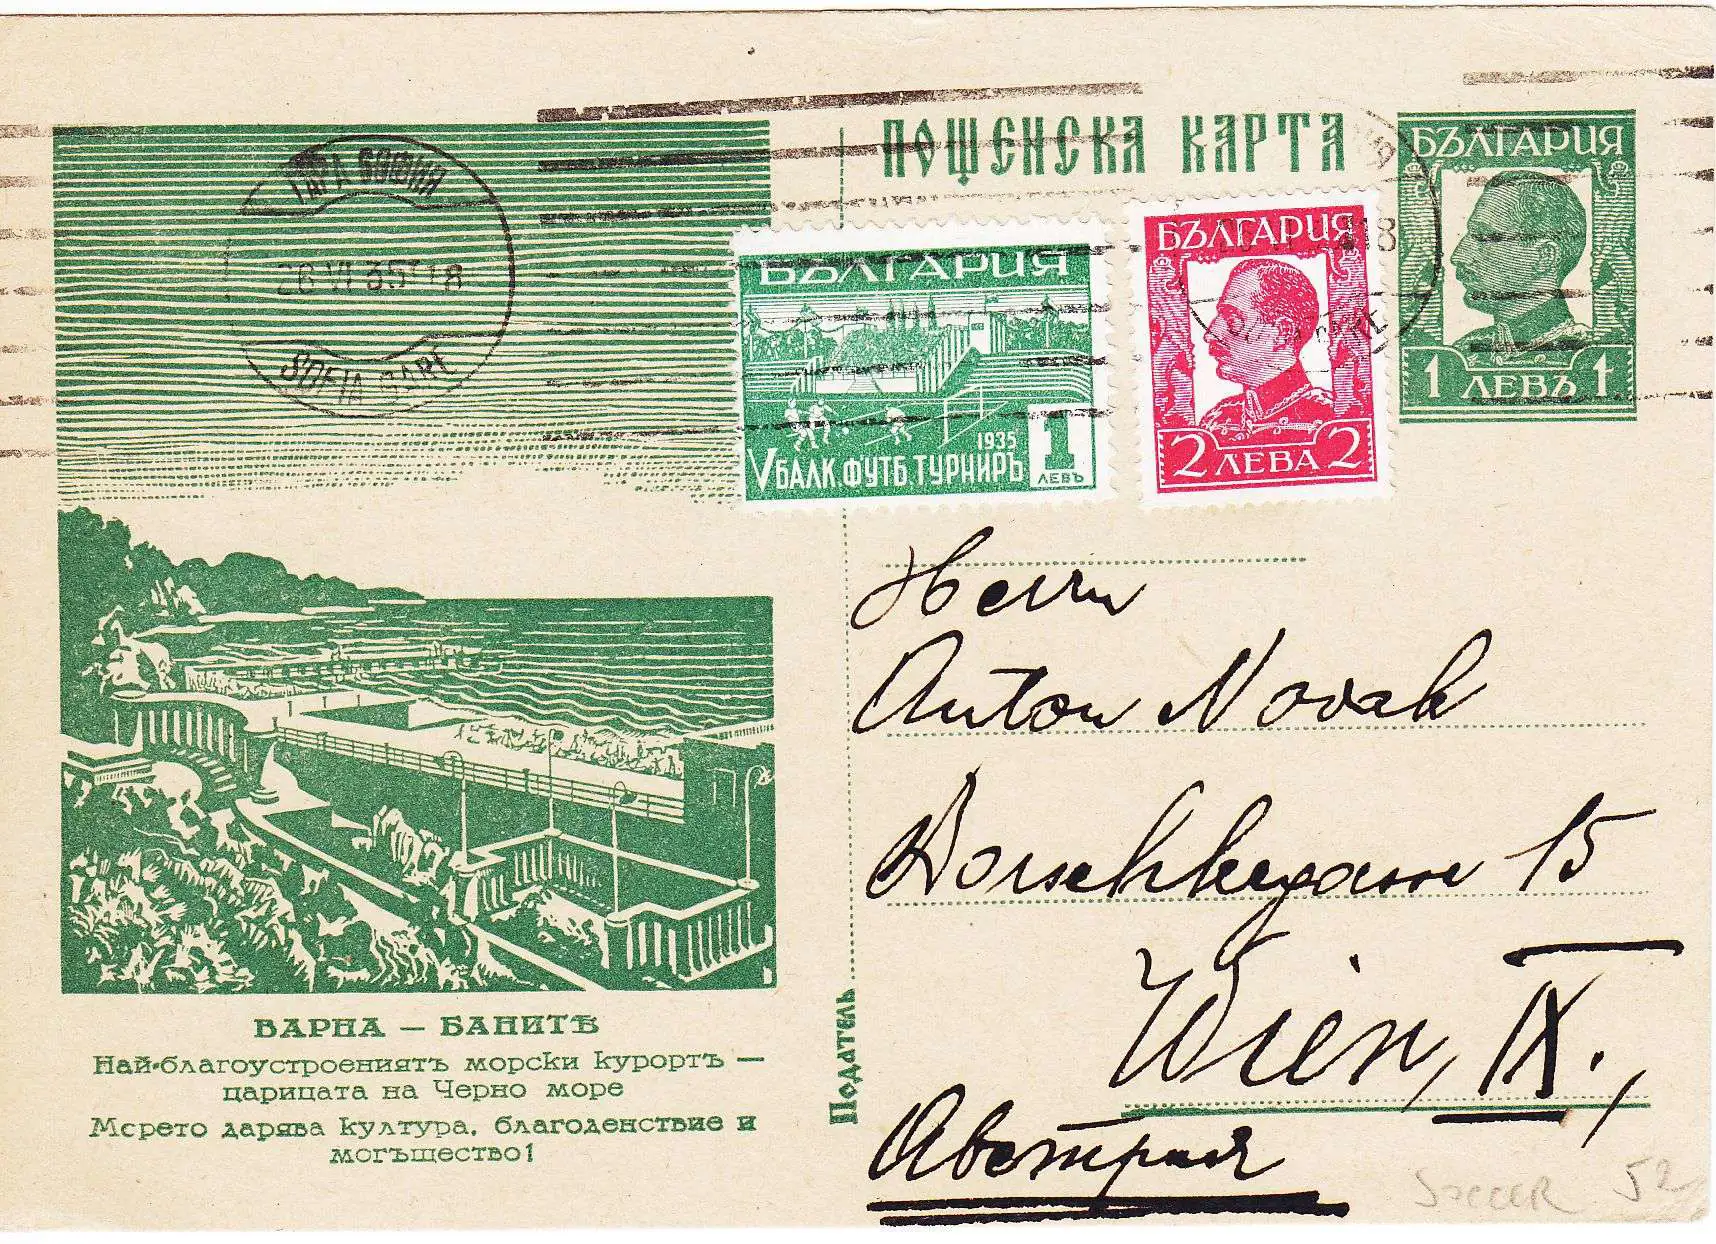 ПОЩЕНСКА КАРТА
БЪЛГАРИЯ
1 ЛЕВЪ 1
ГАРА СОФИЯ
26 VI 35 18
SOFIA GARE
БЪЛГАРИЯ
1935
V БАЛК ФУТБ ТУРНИРЪ
1
ЛЕВЪ
БЪЛГАРИЯ
2 ЛЕВА 2
18
Herrn
Anton Novak
15
Wien, IX.,
Австрия
ВАРНА — БАНИТѢ
Най-благоустроениятъ морски курортъ —
царицата на Черно море
Морето дарява култура, благоденствие и
могъщество!
Податель
Soccer 52